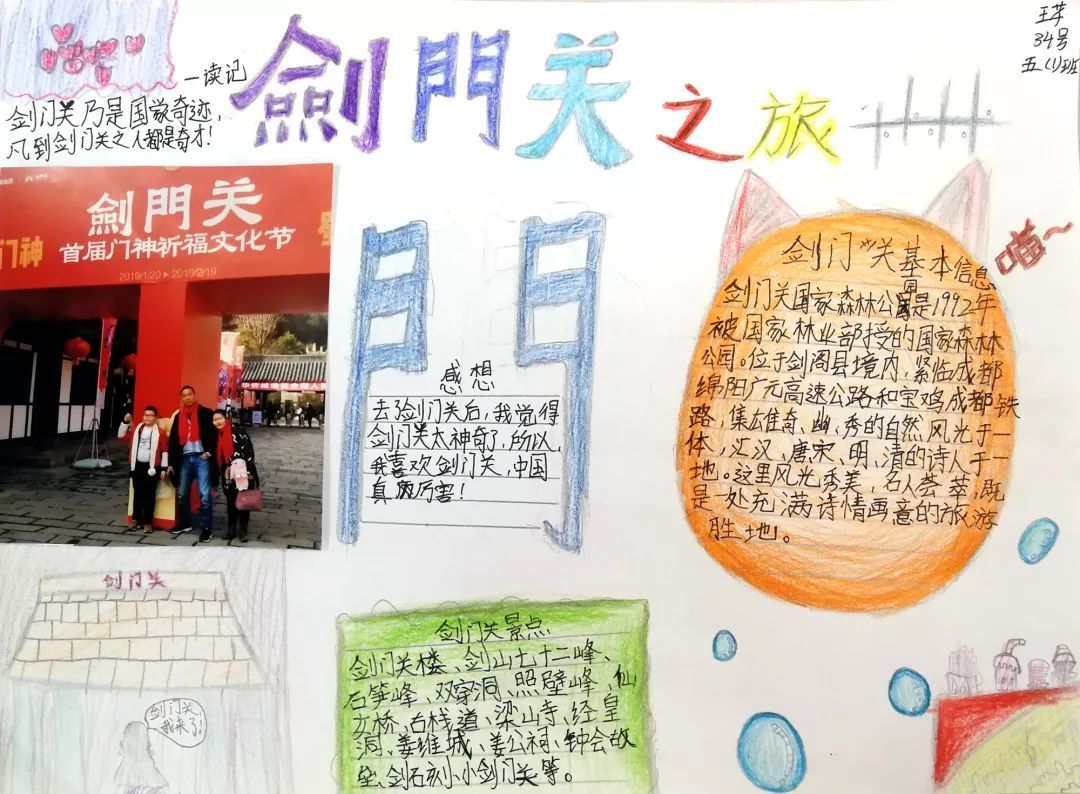 王苹
34号
五(1)班
嘻嘻
一读记
剑门关乃是国家奇迹,
凡到剑门关之人都是奇才!
劍門关之旅
劍門关
门神
首届门神祈福文化节
2019/1/20 ▶ 2019/2/19
門
感想
去了剑门关后,我觉得
剑门关太神奇了,所以,
我喜欢剑门关,中国
真的厉害!
剑门关基本信息
喵~
剑门关国家森林公园是1992年
被国家林业部授的国家森林
公园。位于剑阁县境内,紧临成都
绵阳广元高速公路和宝鸡成都铁
路,集雄奇、幽、秀的自然风光于一
体,汇汉、唐宋、明、清的诗人于一
地。这里风光秀美,名人荟萃,既
是一处充满诗情画意的旅游
胜地。
剑门关
剑门关
我来了!
剑门关景点
剑门关楼、剑山七十二峰、
石笋峰、双穿洞、照壁峰、仙
女桥、古栈道、梁山寺、经皇
洞、姜维城、姜公祠、钟会故
垒、剑石刻小小剑门关等。